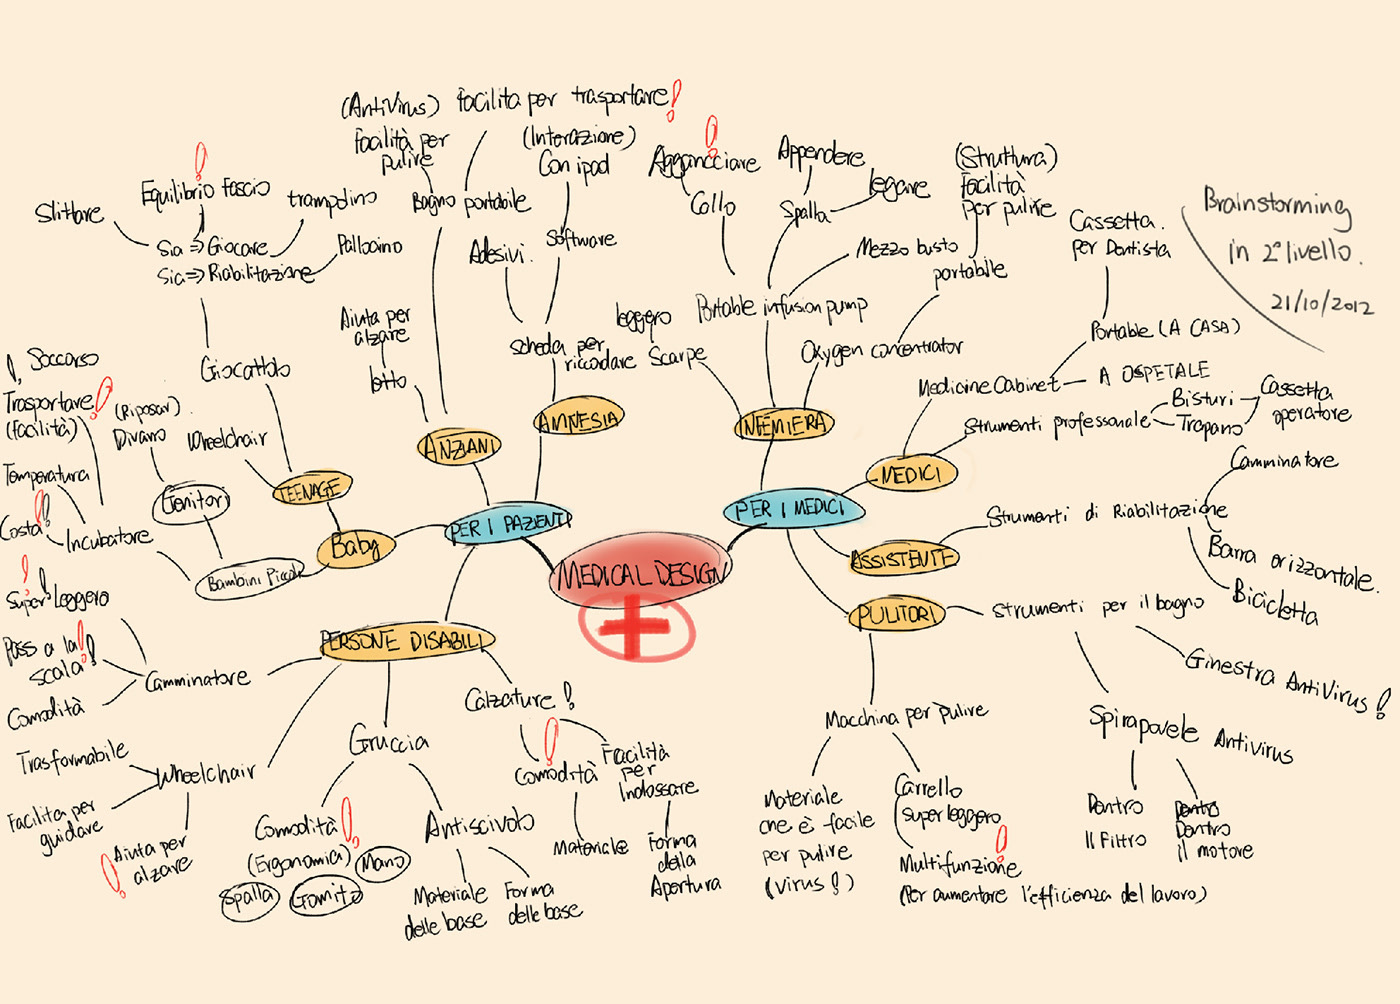 (AntiVirus) facilita per trasportare!
facilità per
pulire
Bagno portabile
(Interazione)
Con ipod
Software
Adesivi.
scheda per
riccodare
AMNESIA
Aiuta per
alzare
letto
ANZIANI
Equilibrio fascio
!
Slittare
trampolino
Sia ⇒ Giocare
Sia ⇒ Riabilitazione
Pallocino
Giocattolo
Wheelchair
TEENAGE
!, Soccorso
Trasportare!
(facilità)
(Riposar)
Divano
Genitori
Temperatura
Costa!!
Incubatore
Bambini Piccoli
Baby
PER I PAZIENTI
! !
Super leggero
Pass a la!!
scala
Comodità
Camminatore
PERSONE DISABILI
Trasformabile
Facilita per
guidare
! Aiuta per
alzare
Wheelchair
Gruccia
Comodità!
(Ergonomia)
Mano
Spalla
Gomito
Antiscivolo
Materiale
delle base
Forma
delle base
Calzature !
!
Comodità
Materiale
Facilità
per
Indossare
Forma
della
Apertura
MEDICAL DESIGN
PER I MEDICI
!
Aggancciare
Collo
Appendere
Spalla
legare
Mezzo busto
Portable infusion pump
leggero
Scarpe
(Struttura)
facilità
per pulire
portabile
Oxygen concentrator
INFEMIERA
Cassetta
per Dentista
Portable (A CASA)
Medicine Cabinet
A OSPETALE
Strumenti professonale
Bisturi
Trapano
Cassetta
operatore
MEDICI
Camminatore
Strumenti di Riabilitazione
Barra orizzontale.
Bicicletta
ASSISTENTE
PULITORI
Strumenti per il bagno
Ginestra AntiVirus !
Spirapovele Antivirus
Dentro
Il Filtro
Dentro
Dentro
il motore
Macchina per pulire
Materiale
che è facile
per pulire
(virus !)
Carrello
super legggero
!
Multifunzione
(Per aumentare l'efficienza del lavoro)
Brainstorming
in 2° livello.
21/10/2012